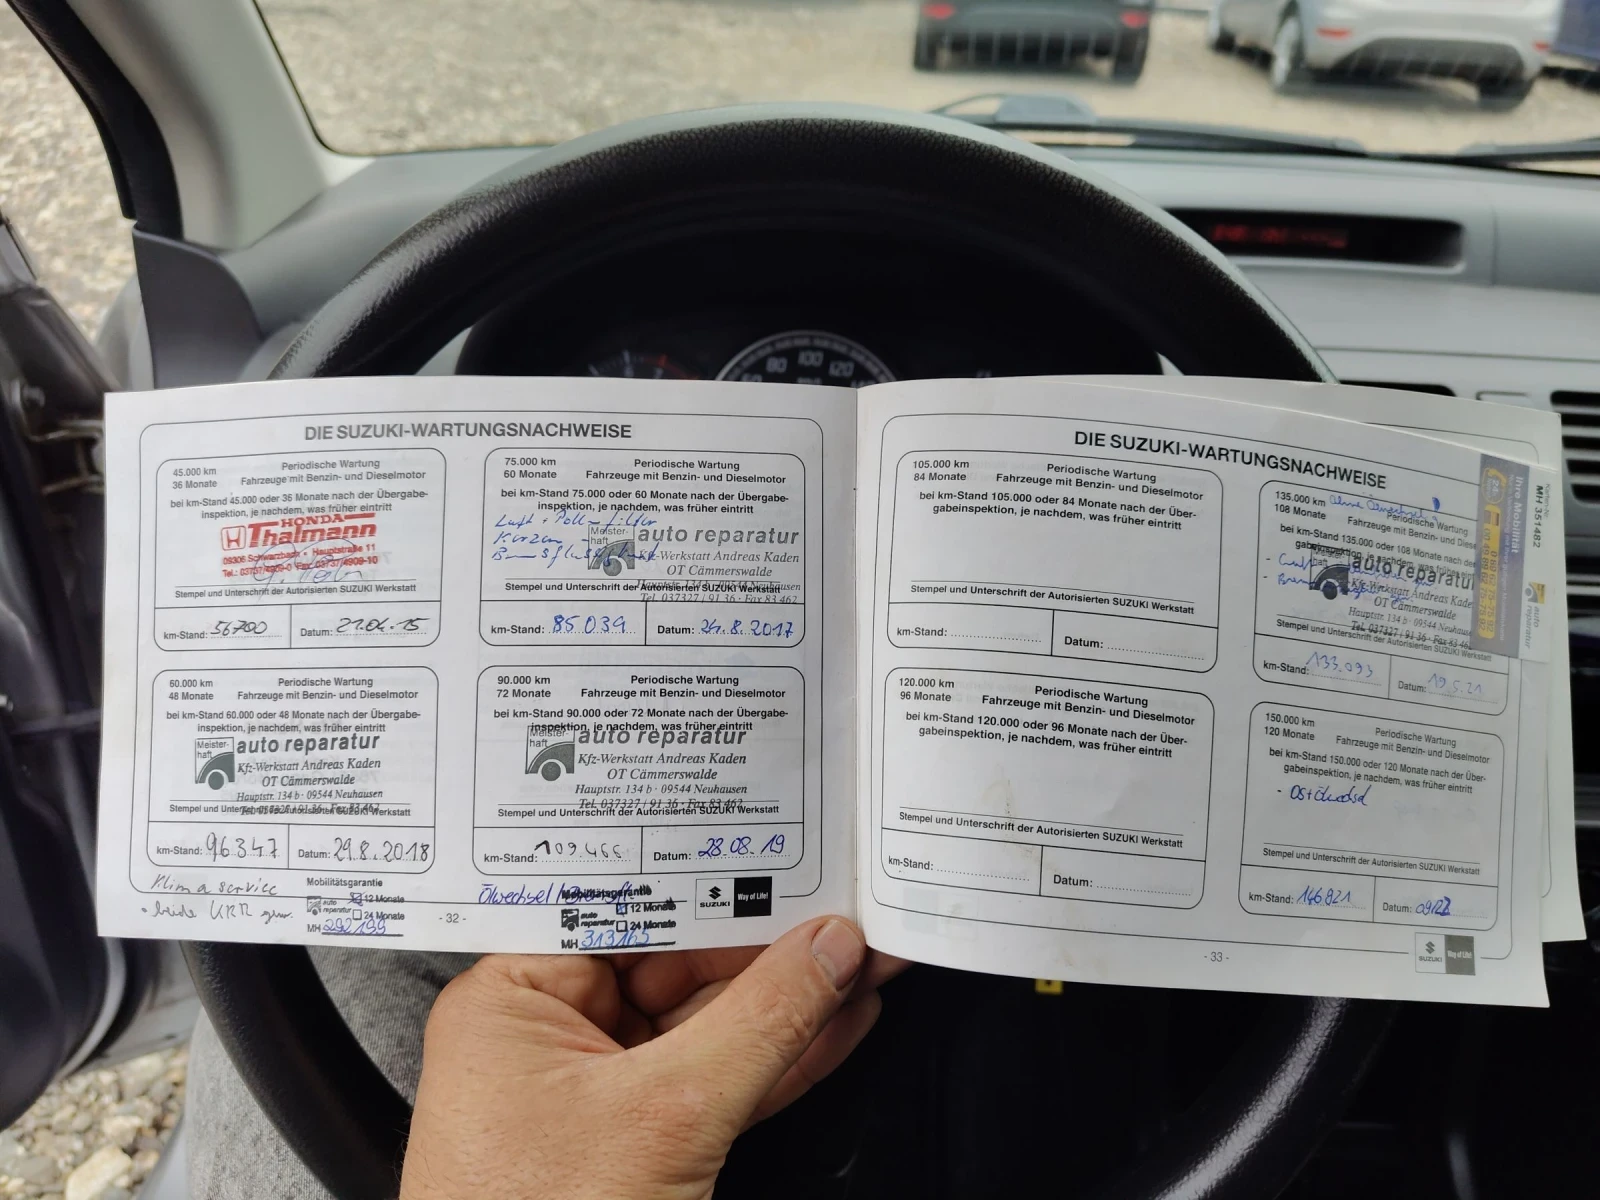 80 100 120
DIE SUZUKI-WARTUNGSNACHWEISE
45.000 km
36 Monate
Periodische Wartung
Fahrzeuge mit Benzin- und Dieselmotor
bei km-Stand 45.000 oder 36 Monate nach der Übergabe-
inspektion, je nachdem, was früher eintritt
HONDA
Thalmann
Hauptstraße 11
Stempel und Unterschrift der Autorisierten SUZUKI Werkstatt
km-Stand: 56700
Datum: 21.04.15
75.000 km
60 Monate
Periodische Wartung
Fahrzeuge mit Benzin- und Dieselmotor
bei km-Stand 75.000 oder 60 Monate nach der Übergabe-
inspektion, je nachdem, was früher eintritt
Luft + Pollenfilter
Kerzen
Meister-
haft
auto reparatur
Kfz-Werkstatt Andreas Kaden
OT Cämmerswalde
Hauptstr. 134 b · 09544 Neuhausen
Stempel und Unterschrift der Autorisierten SUZUKI Werkstatt
Tel. 037327 / 91 36 · Fax 83 462
km-Stand: 85 039
Datum: 24.8.2017
60.000 km
48 Monate
Periodische Wartung
Fahrzeuge mit Benzin- und Dieselmotor
bei km-Stand 60.000 oder 48 Monate nach der Übergabe-
inspektion, je nachdem, was früher eintritt
Meister-
haft
auto reparatur
Kfz-Werkstatt Andreas Kaden
OT Cämmerswalde
Hauptstr. 134 b · 09544 Neuhausen
Tel. 037327 / 91 36 · Fax 83 462
Stempel und Unterschrift der Autorisierten SUZUKI Werkstatt
km-Stand: 96347
Datum: 29.8.2018
Klimaservice
Mobilitätsgarantie
auto
reparatur
12 Monate
24 Monate
MH 292199
90.000 km
72 Monate
Periodische Wartung
Fahrzeuge mit Benzin- und Dieselmotor
bei km-Stand 90.000 oder 72 Monate nach der Übergabe-
inspektion, je nachdem, was früher eintritt
Meister-
haft
auto reparatur
Kfz-Werkstatt Andreas Kaden
OT Cämmerswalde
Hauptstr. 134 b · 09544 Neuhausen
Tel. 037327 / 91 36 · Fax 83 462
Stempel und Unterschrift der Autorisierten SUZUKI Werkstatt
km-Stand: 109.466
Datum: 28.08.19
Ölwechsel
Mobilitätsgarantie
auto
reparatur
12 Monate
24 Monate
MH 313165
SUZUKI
Way of Life!
- 32 -
DIE SUZUKI-WARTUNGSNACHWEISE
105.000 km
84 Monate
Periodische Wartung
Fahrzeuge mit Benzin- und Dieselmotor
bei km-Stand 105.000 oder 84 Monate nach der Über-
gabeinspektion, je nachdem, was früher eintritt
Stempel und Unterschrift der Autorisierten SUZUKI Werkstatt
km-Stand:
Datum:
120.000 km
96 Monate
Periodische Wartung
Fahrzeuge mit Benzin- und Dieselmotor
bei km-Stand 120.000 oder 96 Monate nach der Über-
gabeinspektion, je nachdem, was früher eintritt
Stempel und Unterschrift der Autorisierten SUZUKI Werkstatt
km-Stand:
Datum:
135.000 km
108 Monate
Periodische Wartung
Fahrzeuge mit Benzin- und
bei km-Stand 135.000 oder 108 Monate nach der
gabeinspektion, je nachdem, was früher
Meister-
haft
auto reparatur
Kfz-Werkstatt Andreas Kaden
OT Cämmerswalde
Hauptstr. 134 b · 09544 Neuhausen
Tel. 037327 / 91 36 · Fax 83 462
Stempel und Unterschrift der Autorisierten SUZUKI Werkstatt
km-Stand: 133.093
Datum: 19.5.21
Ihre Mobilität
MH 351482
auto
reparatur
150.000 km
120 Monate
Periodische Wartung
Fahrzeuge mit Benzin- und Dieselmotor
bei km-Stand 150.000 oder 120 Monate nach der Über-
gabeinspektion, je nachdem, was früher eintritt
Stempel und Unterschrift der Autorisierten SUZUKI Werkstatt
km-Stand: 146821
Datum:
SUZUKI
Way of Life!
- 33 -